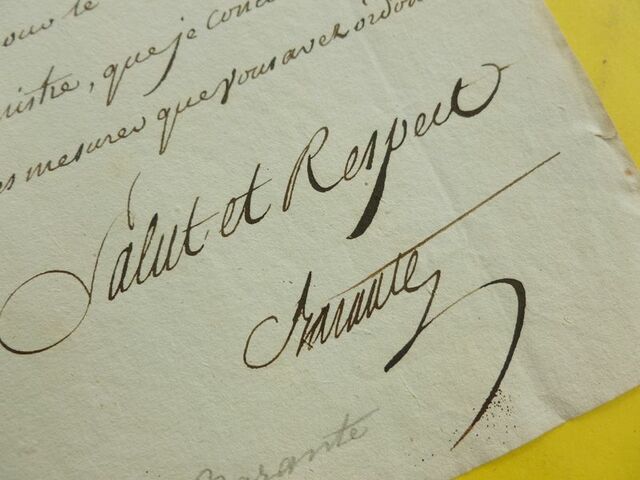 our le
nistre, que je conc
es mesures que vous avez ordon
Salut et Respect
Barante
Barante